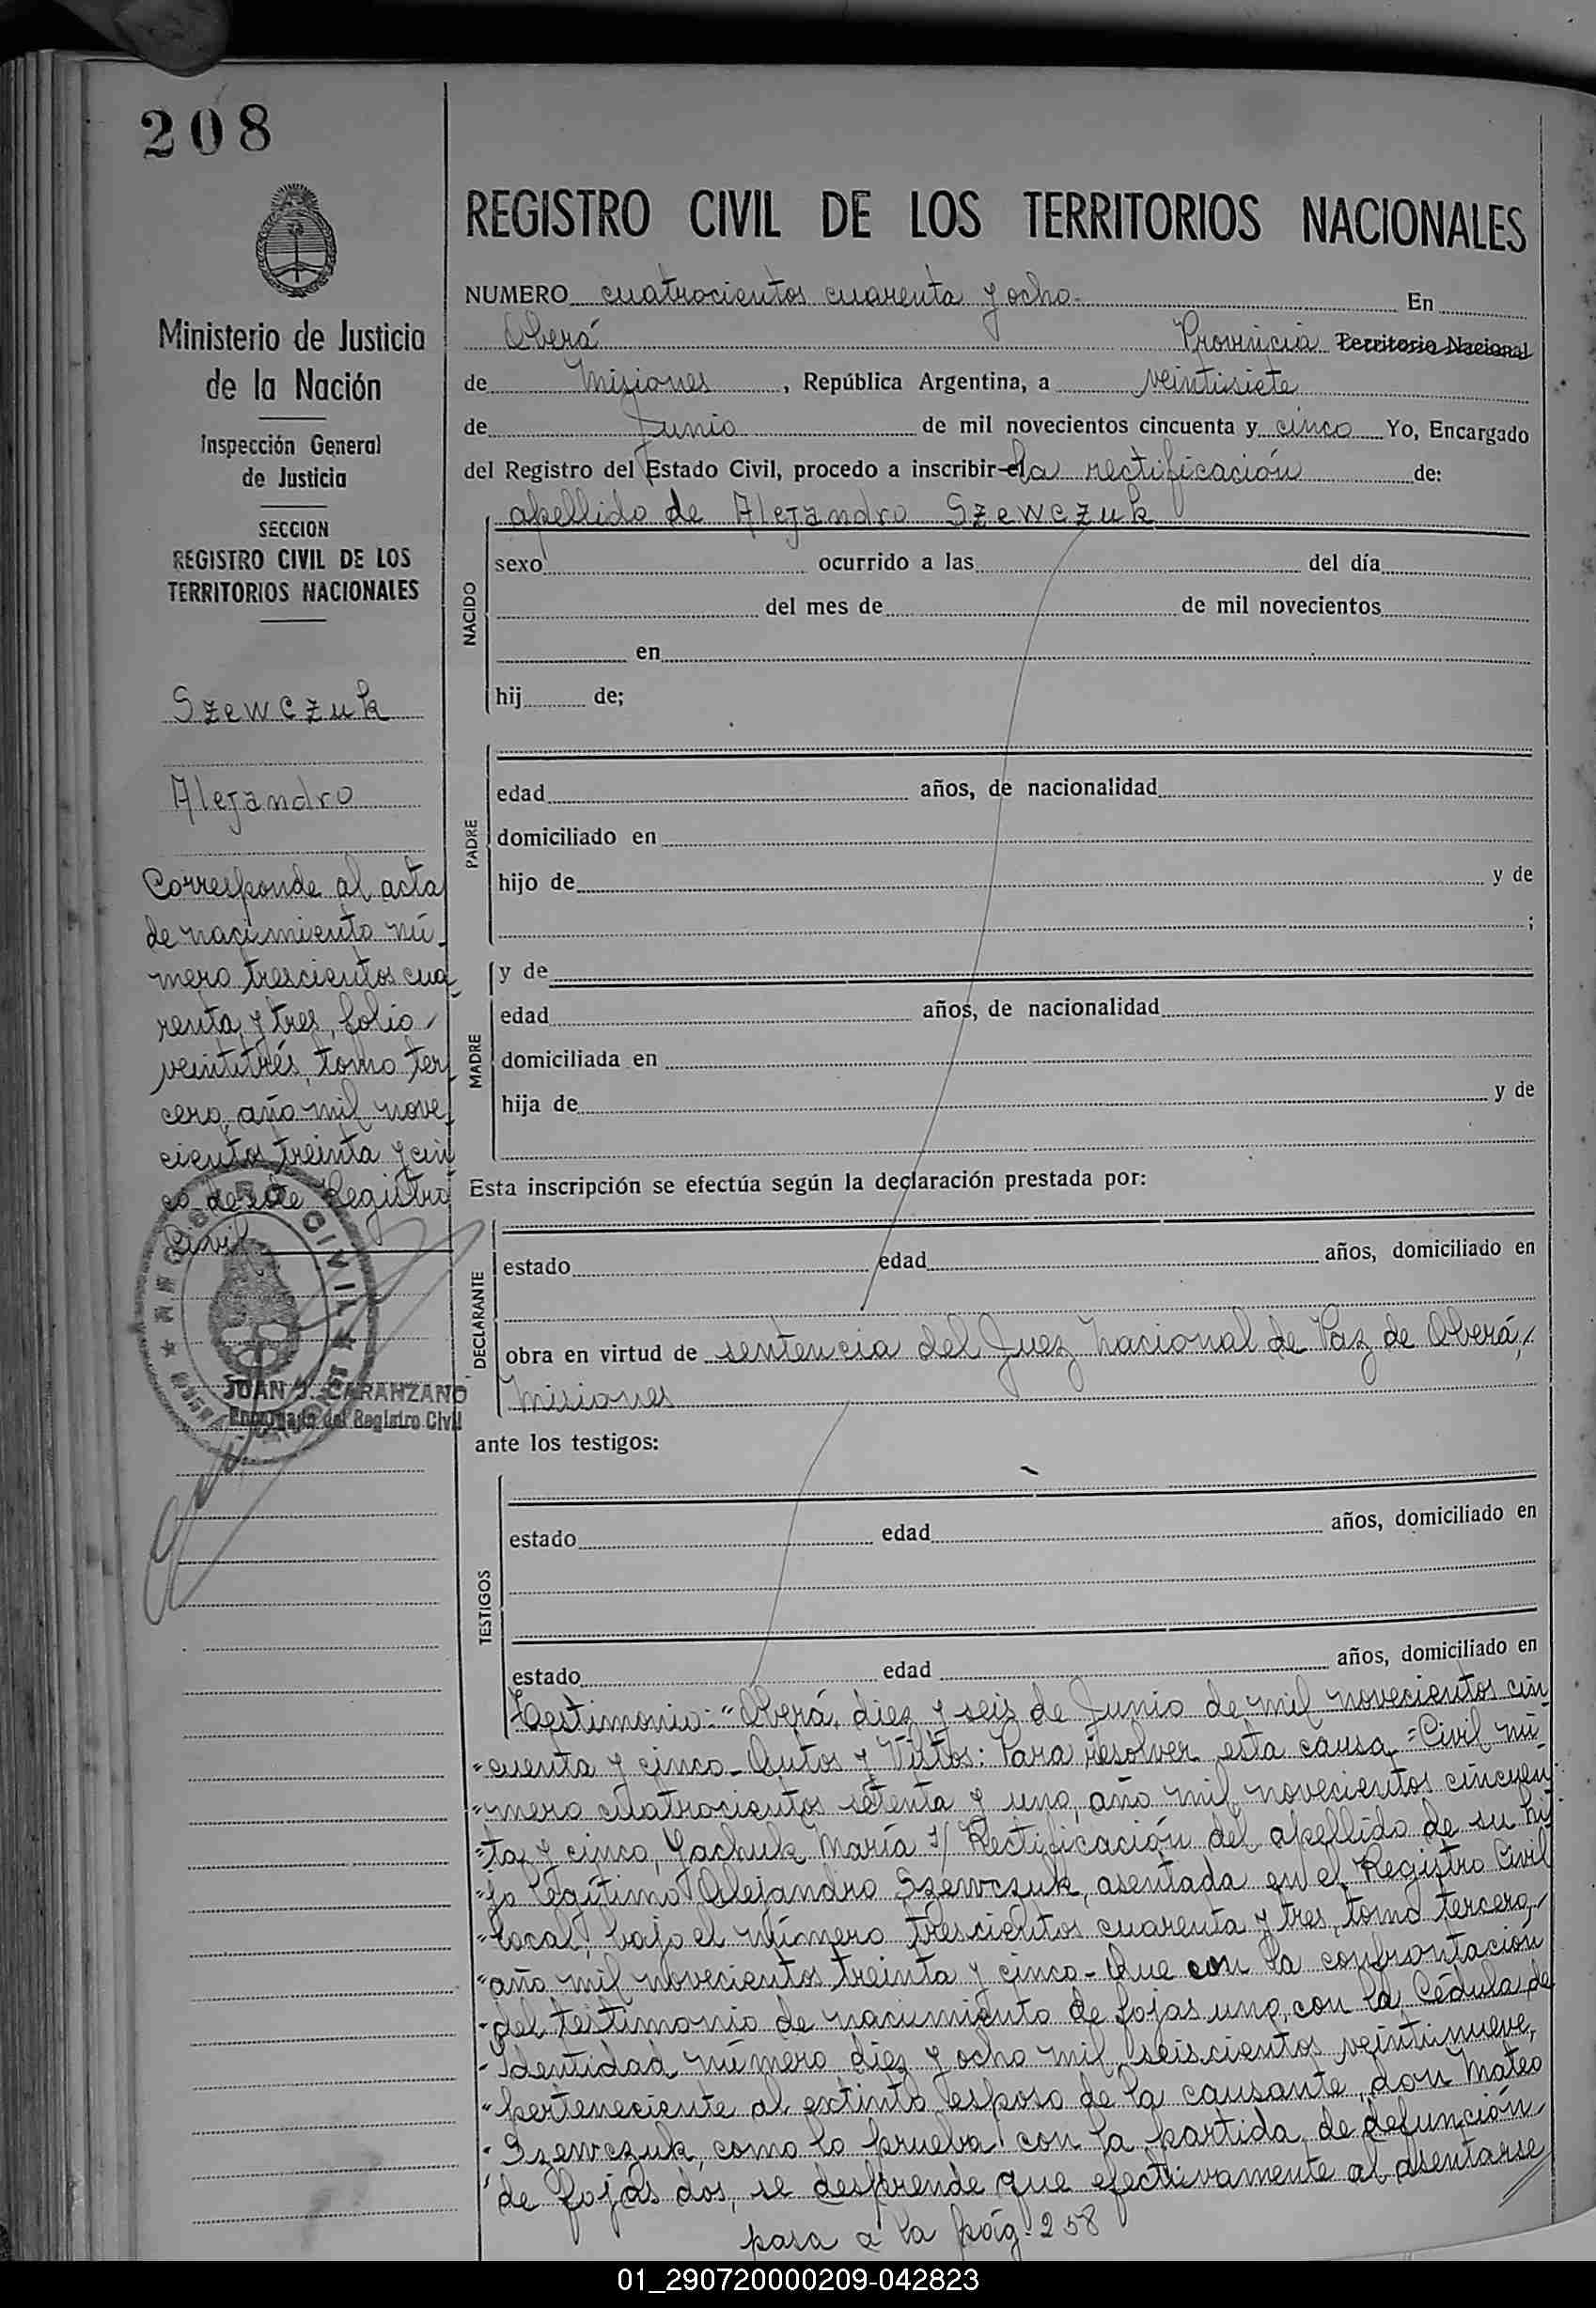 208
Ministerio de Justicia
de la Nación
Inspección General
de Justicia
SECCION
REGISTRO CIVIL DE LOS
TERRITORIOS NACIONALES
Szewczuk
Alejandro
Corresponde al acta
de nacimiento nú-
mero trescientos cua-
renta y tres, folio
veintitrés, tomo ter-
cero, año mil nove-
cientos treinta y cin
co de este Registro
Civil
JUAN J. CARANZANO
Encargado del Registro Civil
REGISTRO CIVIL DE LOS TERRITORIOS NACIONALES
NUMERO cuatrocientos cuarenta y ocho- En
Oberá Provincia Territorio Nacional
de Misiones, República Argentina, a veintisiete
de Junio de mil novecientos cincuenta y cinco Yo, Encargado
del Registro del Estado Civil, procedo a inscribir el la rectificación de:
apellido de Alejandro Szewczuk
NACIDO
sexo ocurrido a las del día
del mes de de mil novecientos
en
hij de;
PADRE
edad años, de nacionalidad
domiciliado en
hijo de y de
;
MADRE
y de
edad años, de nacionalidad
domiciliada en
hija de y de
Esta inscripción se efectúa según la declaración prestada por:
DECLARANTE
estado edad años, domiciliado en
obra en virtud de sentencia del Juez Nacional de Paz de Oberá,
Misiones
ante los testigos:
TESTIGOS
estado edad años, domiciliado en
estado edad años, domiciliado en
Testimonio: "Oberá, diez y seis de Junio de mil novecientos cin-
"cuenta y cinco- Autos y Vistos: Para resolver esta causa =Civil nú-
"mero cuatrocientos setenta y uno, año mil novecientos cincuen-
"ta y cinco, Yachuk María s/ Rectificación del apellido de su hi-
"jo legítimo Alejandro Szewczuk, asentada en el Registro Civil
"local, bajo el número trescientos cuarenta y tres, tomo tercero,
"año mil novecientos treinta y cinco- Que con la confrontación
"del testimonio de nacimiento de fojas uno, con la Cédula de
"Identidad número diez y ocho mil seiscientos veintinueve,
"perteneciente al extinto esposo de la causante, don Mateo
"Szewczuk, como lo prueba con la partida de defunción
"de fojas dos, se desprende que efectivamente al asentarse
pasa a la pág. 258
01_290720000209-042823